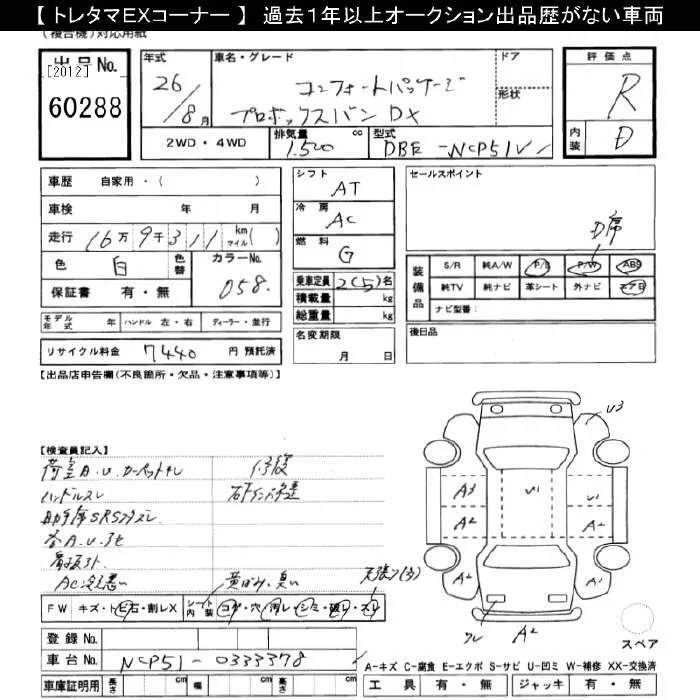 【 トレタマEXコーナー 】 過去1年以上オークション出品歴がない車両
(複合機)対応用紙
出品No.
[2012]
60288
年式
26/8月
車名・グレード
ドア
形状
コンフォートパッケージ
プロボックスバン DX
2WD・4WD
排気量 1.500 cc
型式 DBE-NCP51V
評価点
R
内装 D
車歴 自家用・( )
車検 年 月
走行 16万9千311 km マイル( )
色 白 色替 カラーNo. 058.
保証書 有・無
モデル年式 年 ハンドル 左・右 ディーラー・並行
リサイクル料金 7440 円 預託済
シフト AT
冷房 AC
燃料 G
乗車定員 2(5)名
積載量 kg
総重量 kg
名変期限
月 日
セールスポイント
D席
装備品
S/R 純A/W P/S P/W ABS
純TV 純ナビ 革シート 外ナビ エアB
ナビ型番:
後日品
【出品店申告欄(不良箇所・欠品・注意事項等)】
【検査員記入】
荷室A.U.カーペットナシ
ハンドルスレ
助手席SRSフタズレ
各A.U.
AC冷え悪い
黄ばみ,臭い
天張り(ヨ)
FW キズ・トビ石・割レX
シート内装 コゲ・穴・汚レ・シミ・破レ・スレ
登録No.
車台No. NCP51-0333378
車庫証明用 長さ cm 幅 cm 高さ cm
U3
A3
U1
A2
A2
A2
A1
ワレ
A2
スペア
A-キズ C-腐食 E-エクボ S-サビ U-凹ミ W-補修 XX-交換済
工具 有・無 ジャッキ 有・無